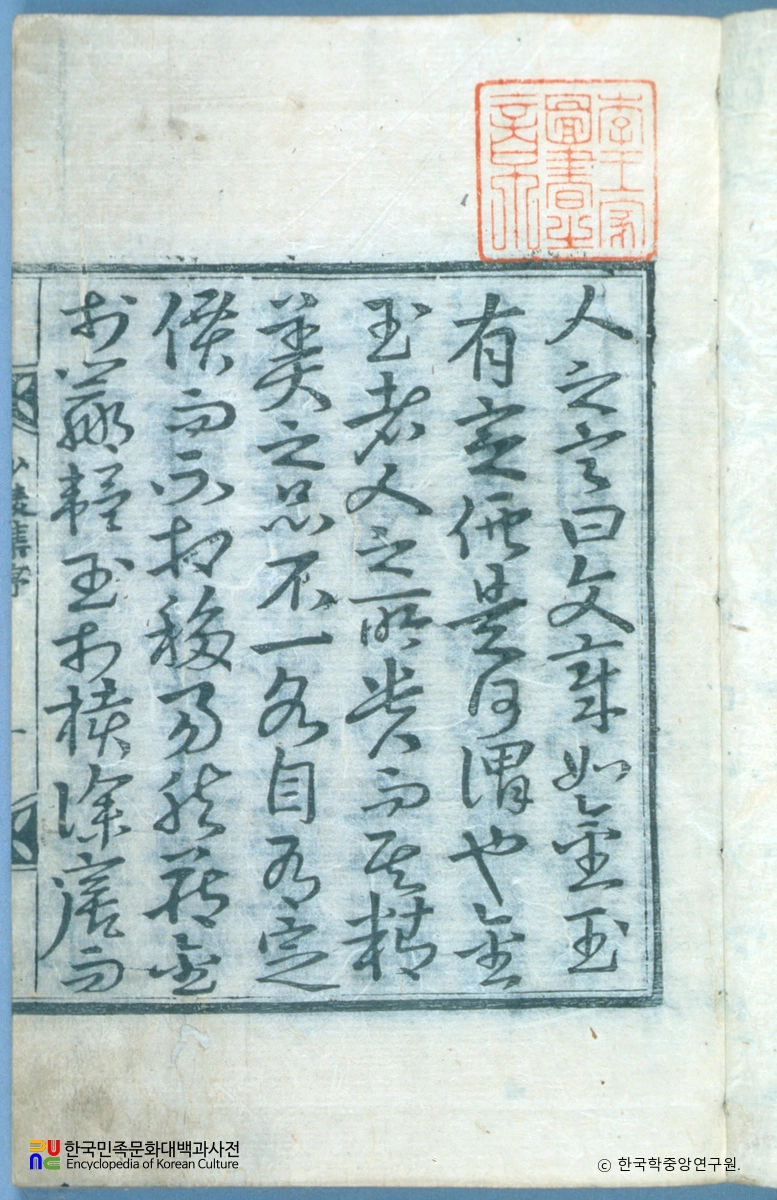 李王家
圖書之
章
人之言曰文章如金玉
有定價是何謂也金
玉者人之所貴而其精
美之品不一各自有定
價而不相移易然藏金
於籯韞玉於櫝深而
陵集
一
한국민족문화대백과사전
Encyclopedia of Korean Culture
ⓒ 한국학중앙연구원.